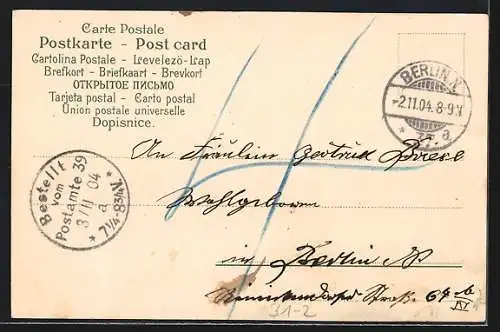 Carte Postale
Postkarte - Post card
Cartolina Postale - Levelező-Lap
Brefkort - Briefkaart - Brevkort
ОТКРЫТОЕ ПИСЬМО
Tarjeta postal - Carto postal
Union postale universelle
Dopisnice.
BERLIN, N
-2.11.04. 8-9.V
* 37. a.
Bestellt
vom
Postamte 39
3/11 04
a
* 7¼-8¾V. *
An Fräulein Gertrud
Wohlgeboren
in Berlin N
Straße 64 b
IV
31-2